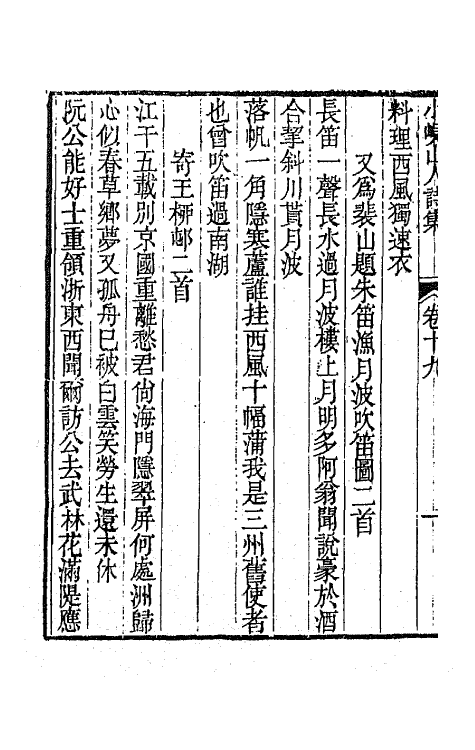 小峴山人詩集 卷十九 一
料理西風獨速衣
又爲裴山題朱笛漁月波吹笛圖二首
長笛一聲長水過月波樓上月明多阿翁聞說豪於酒
合挈斜川貰月波
落帆一角隱寒蘆誰挂西風十幅蒲我是三州舊使者
也曾吹笛過南湖
寄王柳邨二首
江干五載別京國重離愁君尙海門隱翠屏何處洲歸
心似春草鄉夢又孤舟已被白雲笑勞生還未休
阮公能好士重領浙東西聞爾訪公去武林花滿隄應